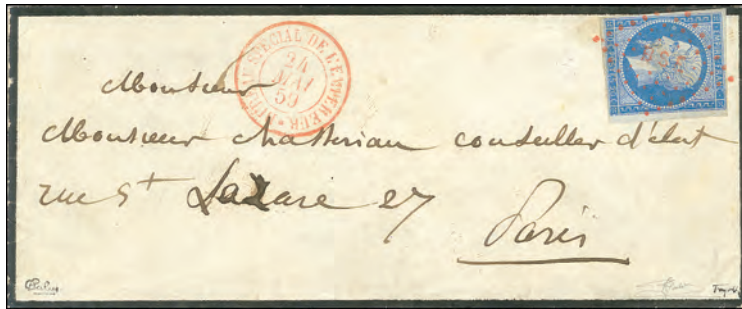 SPÉCIAL DE L'EMPEREUR
24
MAI
59
Monsieur
Monsieur Chasseriau conseiller d'état
rue St Lazare 27
Paris